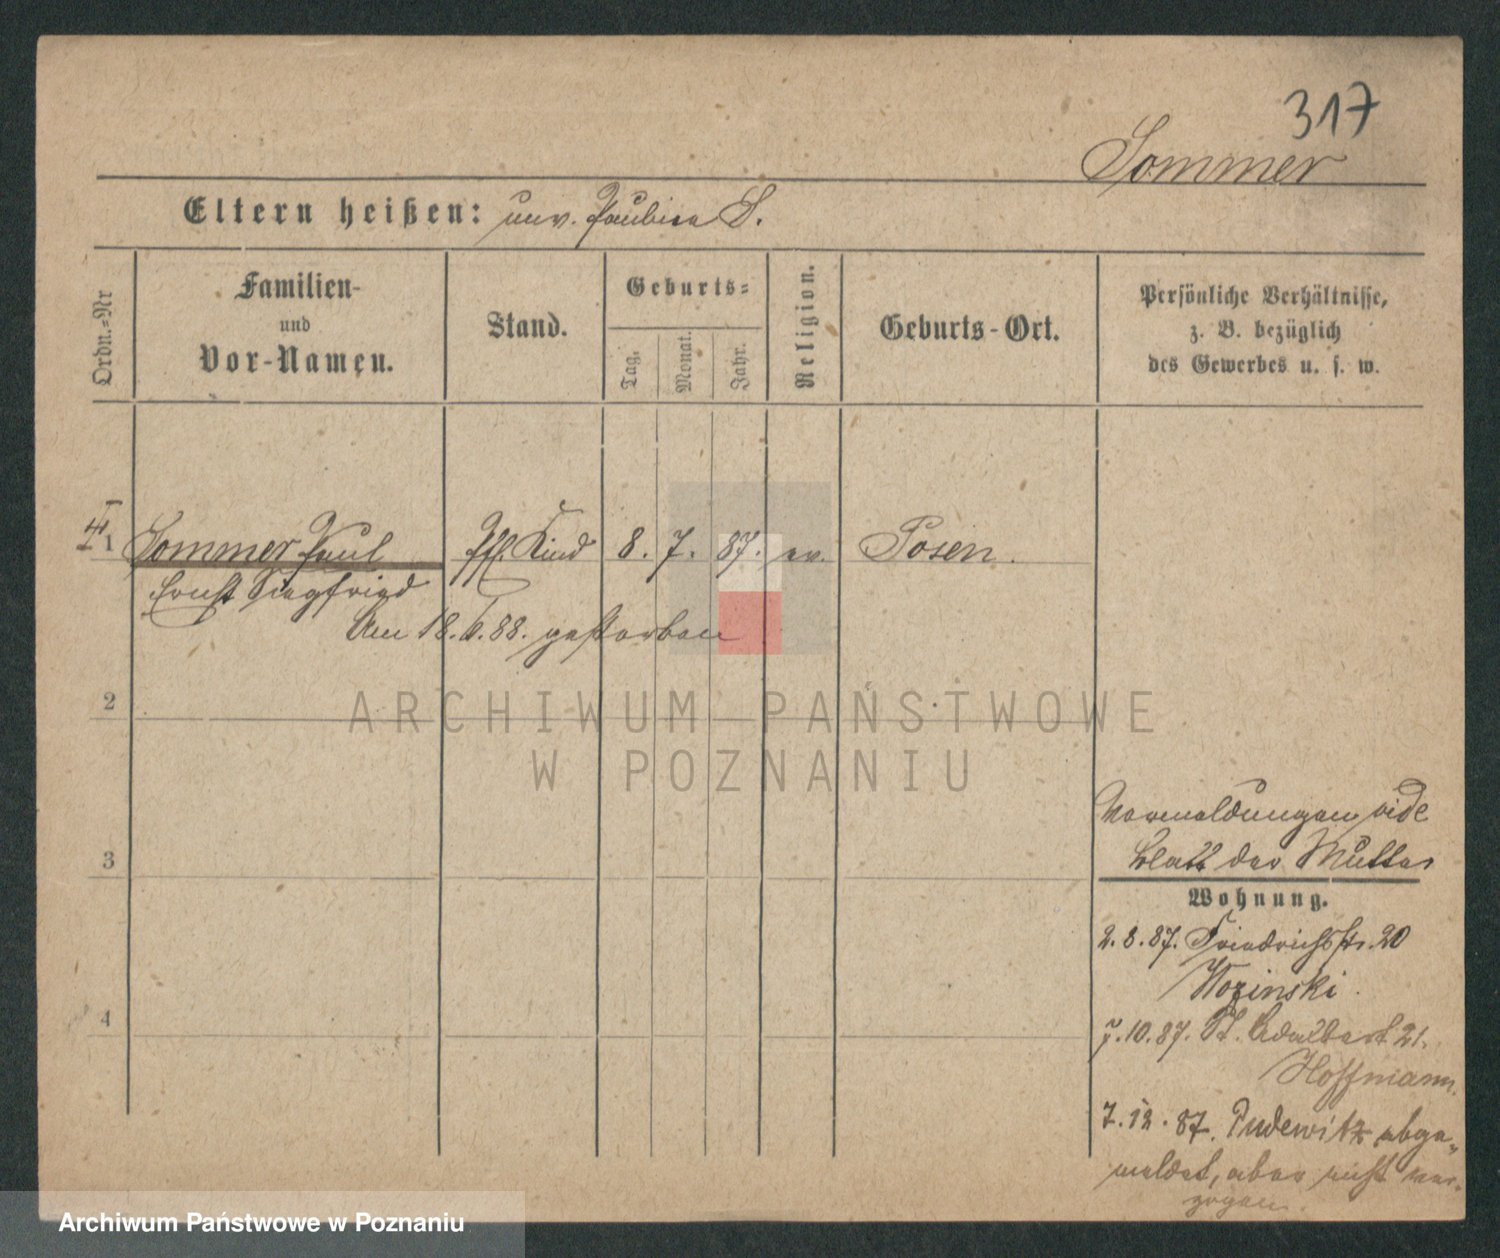 317
Sommer
Eltern heißen: unv. Pauline S.
Ordn.=Nr
Familien-
und
Vor-Namen.
Stand.
Geburts=
Tag.
Monat.
Jahr.
Religion.
Geburts-Ort.
Persönliche Verhältnisse,
z. B. bezüglich
des Gewerbes u. s. w.
1 Sommer Paul Kind 8. 7. 87. ev. Posen.
Ernst Siegfried
Am 18. 88. gestorben
2
3
4
Vormeldungen vide
Blatt der Mutter
Wohnung.
2.8.87. Friedrichsstr. 20
Wozinski.
7.10.87. St. Adalbert 21.
Hoffmann.
7.12.87. Pudewitz abge=
meldet, aber nicht ver=
zogen.
ARCHIWUM PAŃSTWOWE
W POZNANIU
Archiwum Państwowe w Poznaniu